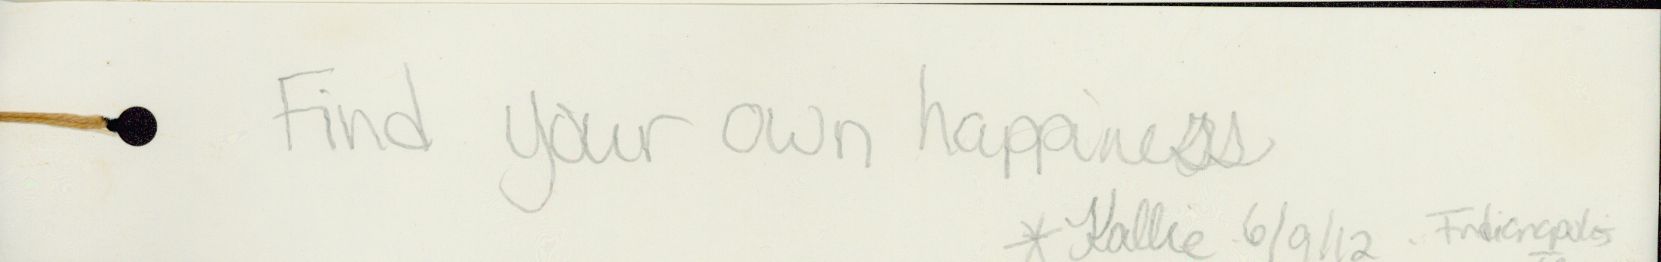 Find your own happiness
* Kallie 6/9/12 . Indianapolis